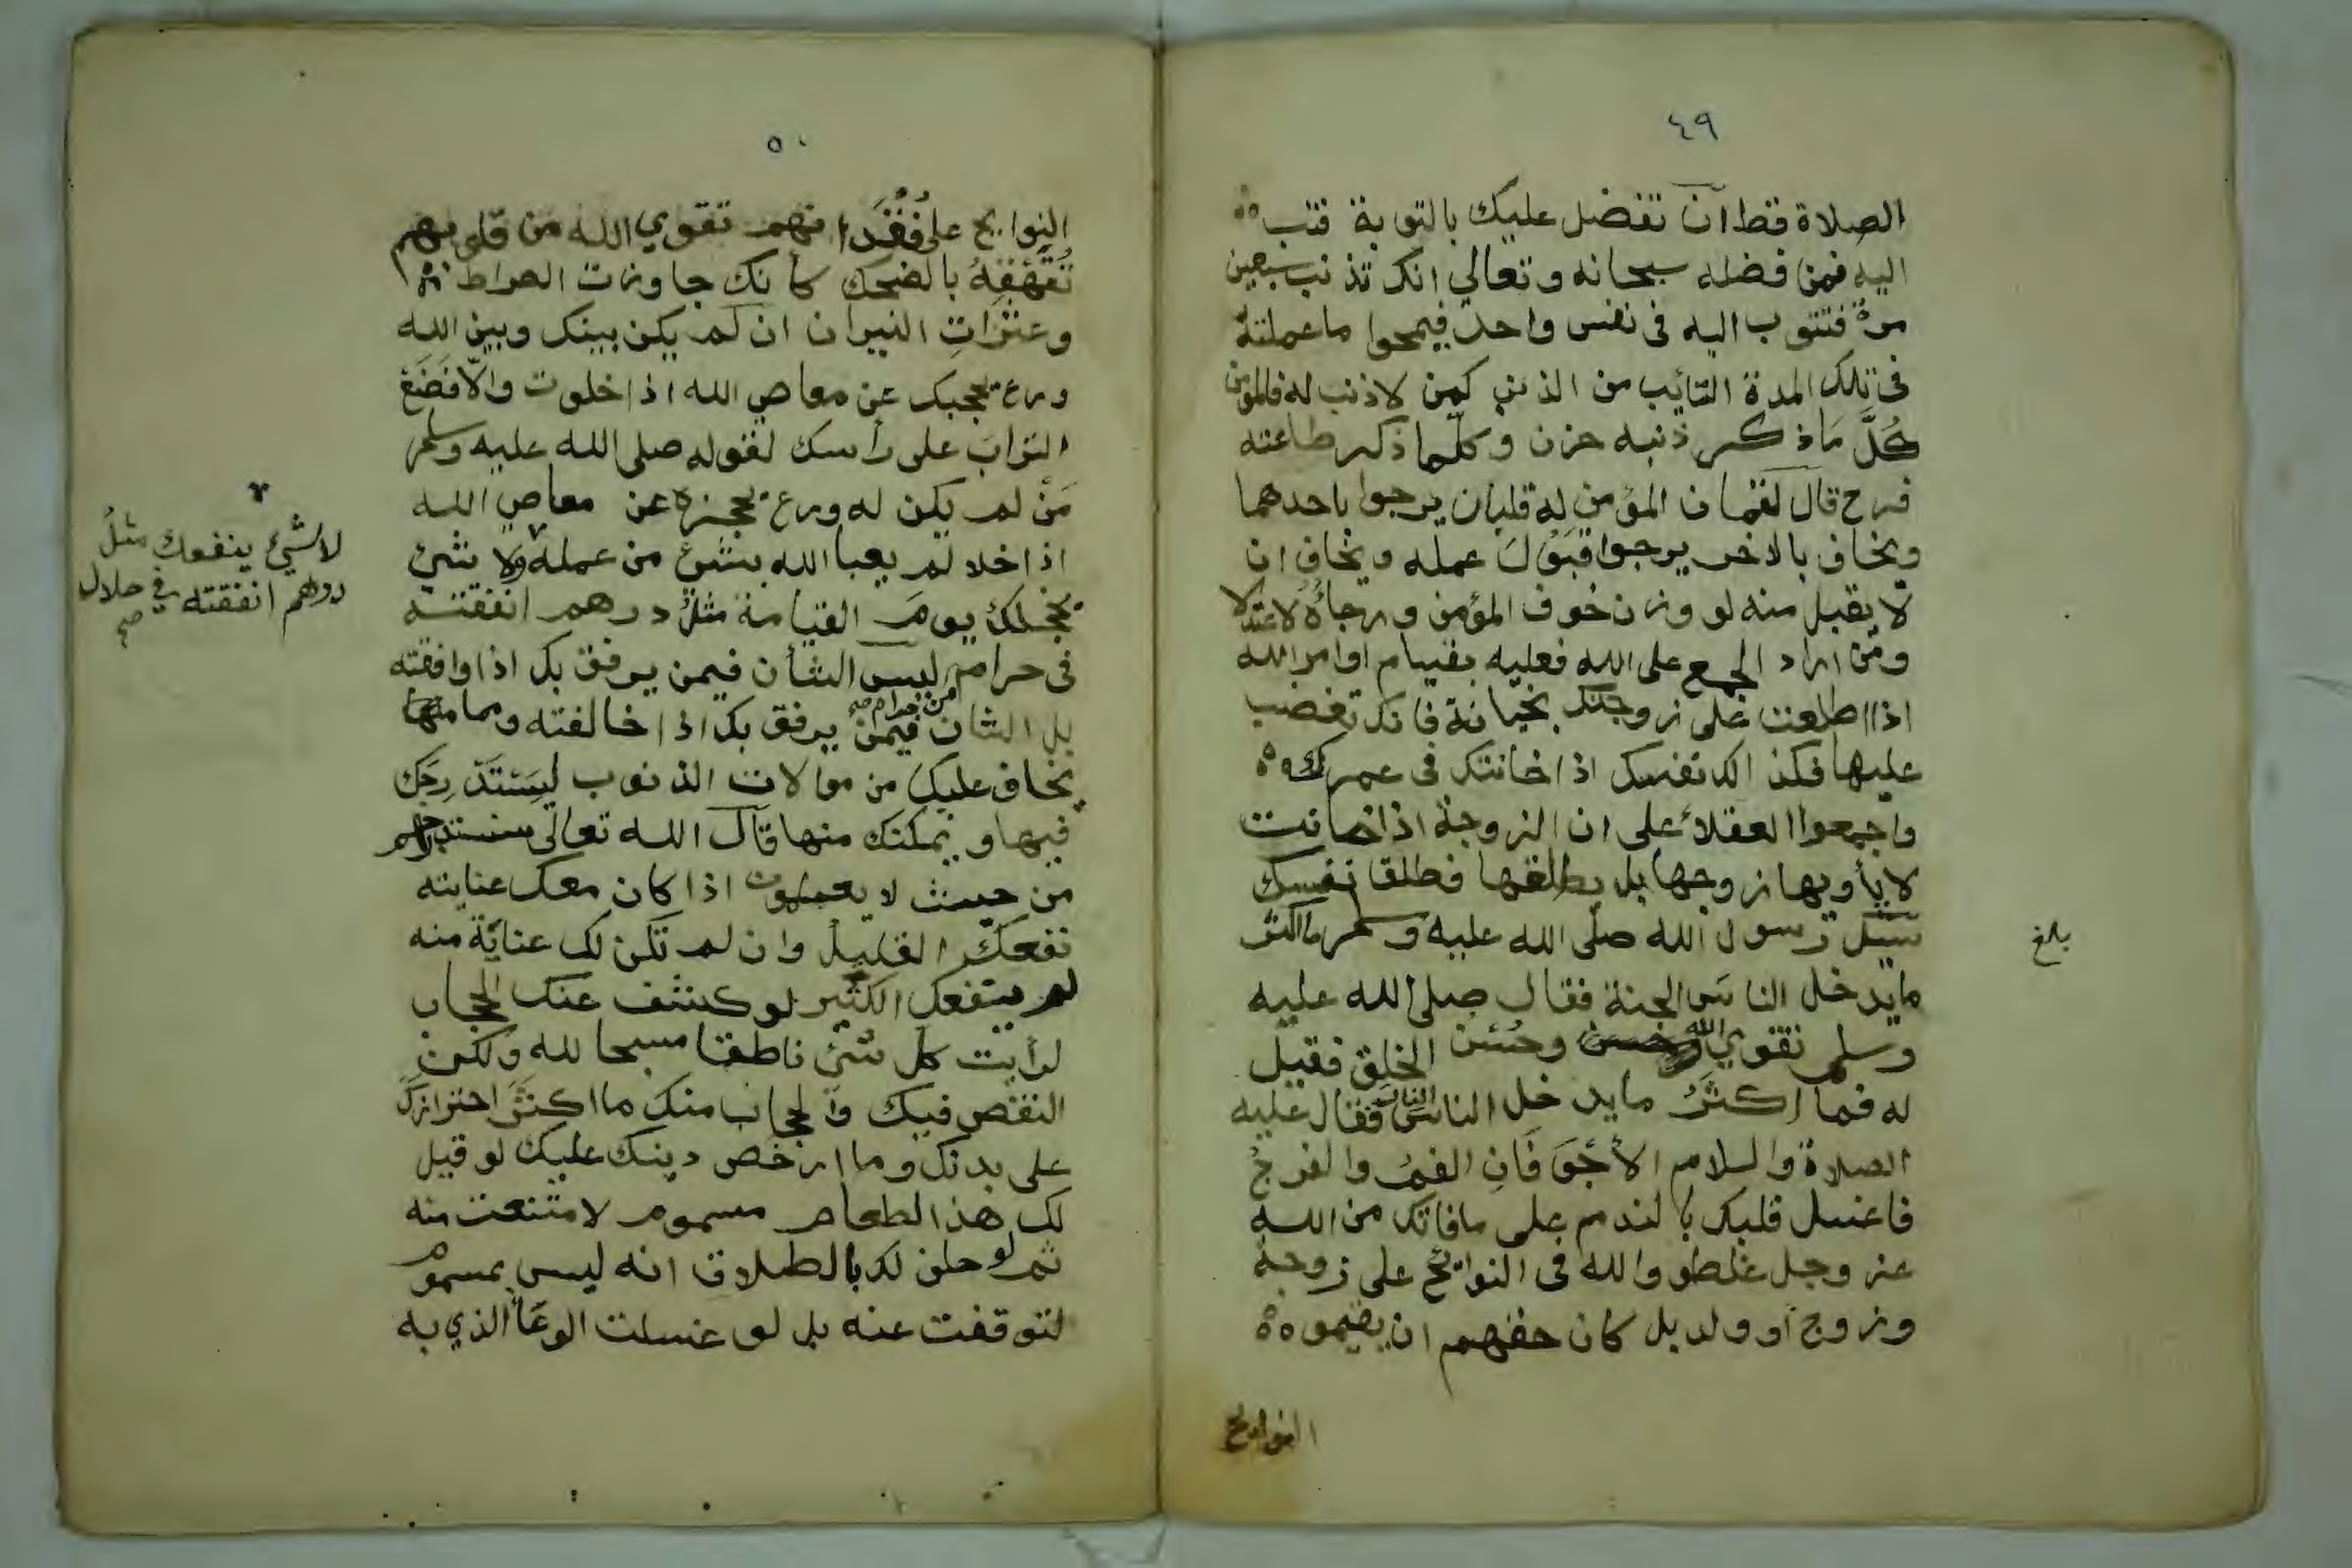 ٤٩
الصلاة فقط ان تفضل عليك بالتوبة فتب
اليه فمن فضله سبحانه وتعالي انك تذنب سبعين
مرة فتتوب اليه في نفس واحد فيمحوا ما عملته
في تلك المدة التائب من الذنب كمن لا ذنب له فالمومن
كُلَّ مَا ذكر ذنبه حزن وكلّما ذكر طاعته
فرح قال لقمان المؤمن له قلبان يرجوا باحدهما
ويخاف بالاخر يرجوا قبَوُلَ عمله ويخاف ان
لا يقبل منه لو وزن خوف المؤمن ورجاؤُهُ لاعتدلا
ومن اراد الجمع على الله فعليه بقيام اوامر الله
اذا اطلعت على زوجتك بخيانة فانك تغضب
عليها فكذالك نفسك اذا خانتك في عمرك
واجمعوا العقلاء على ان الزوجة اذا خانت
لا يأويها زوجها بل يطلقها فطلقا نفسك
سئل رسول الله صلّى الله عليه وسلم ما اكثر
ما يدخل الناس الجنة فقال صلى الله عليه
وسلم تقوي الله وحُسن الخلق فقيل
له فما اكثرُ ما يدخل الناس النار فقال عليه
الصلاة والسلام الأجْوَفَانِ الفمُ والفرجُ
فاغسل قلبك بالندم على ما فاتك من الله
عز وجل غلطو والله في النوايح على زوجة
وزوج أو ولد بل كان حقهم ان يقيموا
النوايح
بلغ
٥٠
النوايح على فُقْدَانهم تقوي الله من قلوبهم
تُقَهْقِهُ بالضحك كأنك جاوزت الصراط
وعثرَاتِ النيران ان لم يكن بينك وبين الله
ورع يحجبك عن معاصي الله اذا خلوت والّا فَضَعْ
الترابَ على رأسك لقوله صلى الله عليه وسلم
مَنْ لم يكن له ورع يحجزه عن معاصي الله
اذا خلا لم يعبا الله بشئ من عمله ولا شئ
يخجلك يومَ القيامة مثلُ درهم انفقته
في حرام ليس الشأن فيمن يرفق بك اذا وافقته
بل الشان فيمن يرفق بك اذا خالفته ومما
يخاف عليك من موالات الذنوب ليَستَدْرِجَك
فيها ويمكنك منها قال الله تعالى سنستدرجهم
من حيث لا يعملون اذا كان معك عنايته
نفعك القليل وان لم تكن لك عناية منه
لم ينفعك الكثير لو كشف عنك الحجاب
لرأيت كل شئ ناطقا مسبحا لله ولكن
النقص فيك والحجاب منك ما اكثرَ احترازك
على بدنك وما ارخص دينك عليك لو قيل
لك هذا الطعام مسموم لامتنعت منه
ثم لو حلف لك بالطلاق انه ليس بمسموم
لتوقفت عنه بل لو غسلت الوعَاَ الذي به
لا شئ ينفعك مثلُ
درهم انفقته في حلال
صح